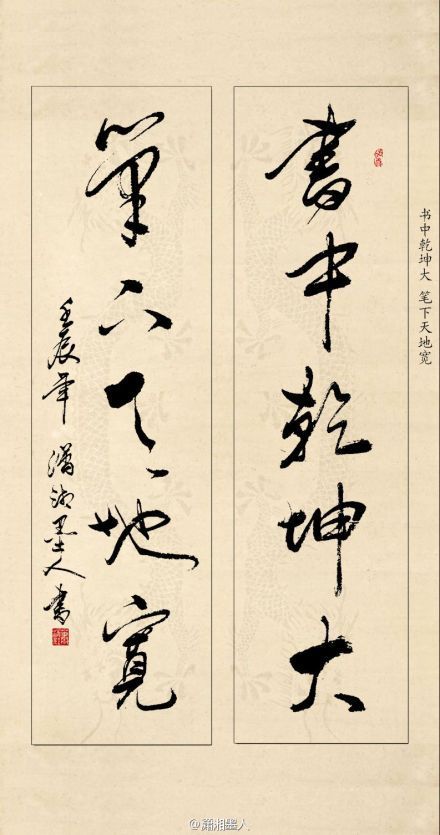 书中乾坤大 笔下天地宽
書中乾坤大
筆下天地寬
壬辰年 瀟湘墨人書
@瀟湘墨人